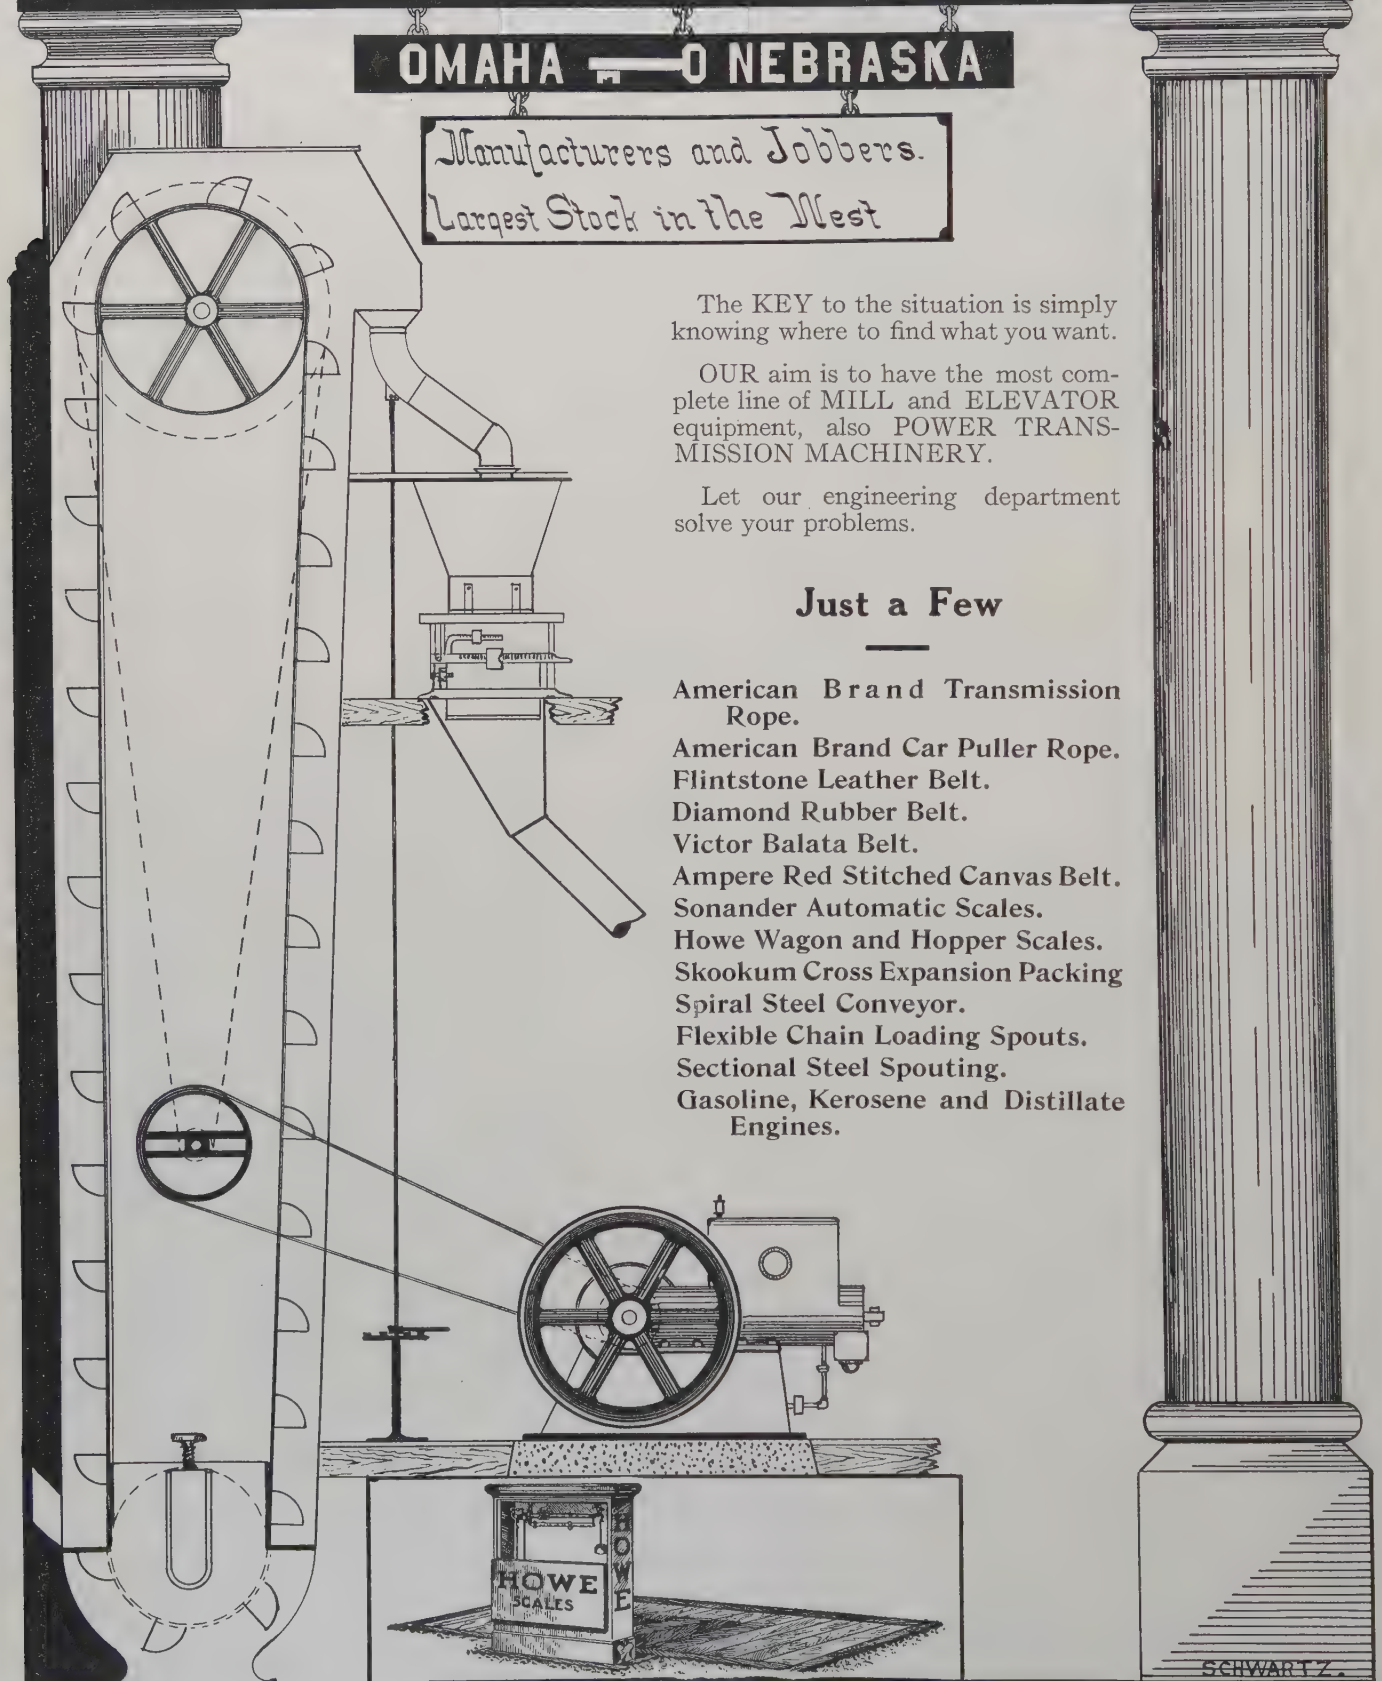 OMAHA NEBRASKA
Manufacturers and Jobbers.
Largest Stock in the West
The KEY to the situation is simply
knowing where to find what you want.
OUR aim is to have the most com-
plete line of MILL and ELEVATOR
equipment, also POWER TRANS-
MISSION MACHINERY.
Let our engineering department
solve your problems.
Just a Few
American Brand Transmission
Rope.
American Brand Car Puller Rope.
Flintstone Leather Belt.
Diamond Rubber Belt.
Victor Balata Belt.
Ampere Red Stitched Canvas Belt.
Sonander Automatic Scales.
Howe Wagon and Hopper Scales.
Skookum Cross Expansion Packing
Spiral Steel Conveyor.
Flexible Chain Loading Spouts.
Sectional Steel Spouting.
Gasoline, Kerosene and Distillate
Engines.
HOWE
SCALES
HOWE
SCHWARTZ.